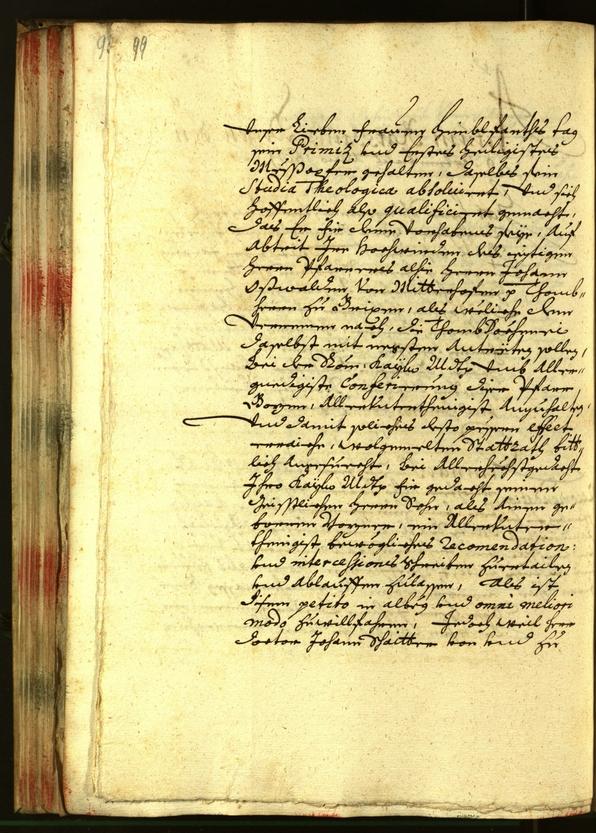 99
Unser Lieben Frauen Himblfarths tag
sein Primiz und Erstes heiligistes
Mössopfer gehalten, daselbs sein
Studia Theologica absoluiert, und sich
hoffentlich also qualificiert gemacht,
das Er für dem vorhabens seye, Auf
Abtrit Ihr Hochwürden des ietzigen
Herrn Pfarrers alhie Herrn Johann
von Mitterhofen p Thomb-
herrn zu Brixen, als welche dem
vernemen nach, die ThombDechanei
daselbst mit negsten Antretten sollen,
bei der Röm: Kayl: Mtt: umb Aller-
gnedigiste Conferierung diser Pfarr
Bozen, Allerunterthenigist Anzuhalten,
Und damit solliches desto effect
erraiche, wolgemelten Stattrath bitt-
lich Angesuecht, bei Allerhöchstgedacht
Ihro Kayl: Mtt: für gedacht seinen
Geistlichen Herrn Sohn, als Ainen ge-
bornen Bozner, ein Allerunter-
thenigist bewögliches recomendation:
und intercessions schreiben zuertailen
und Ablauffen zulassen, Als ist
disem petito in albeg und omni meliori
modo zuwillfahren, Jedoch weil Herr
Doctor Johann von und zu